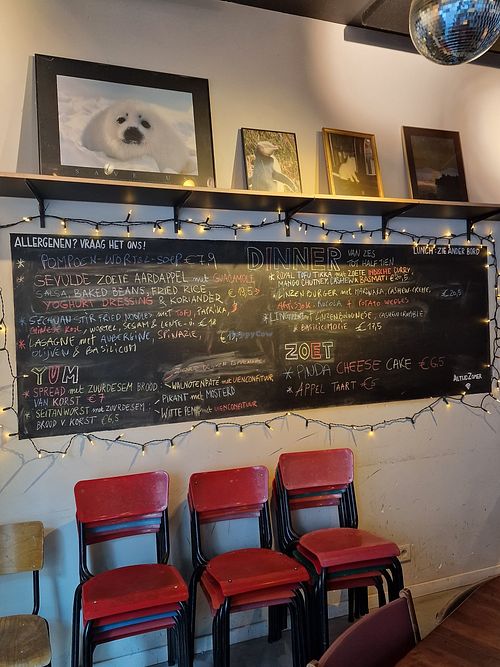 SAVE U
ALLERGENEN? VRAAG HET ONS!
POMPOEN-WORTEL-SOEP €7,9
* GEVULDE ZOETE AARDAPPEL met GUACAMOLE,
SALSA, BAKED BEANS, FRIED RICE
YOGHURT DRESSING & KORIANDER
STIR FRIED NOODLES met TOFU, PAPRIKA,
CHINESE KOOL, WORTEL, SESAM & LENTE-UI €18
* LASAGNE met AUBERGINE, SPINAZIE,
OLIJVEN & BASILICUM
YUM
* SPREAD met ZUURDESEM BROOD
VAN KORST €7
* SEITANWORST met ZUURDESEM
BROOD V. KORST €6,5
WALNOTENPATE met UIENCONFITUUR
PIKANT met MOSTERD
WITTE PENS met UIENCONFITUUR
DINNER VAN ZES TOT HALF TIEN
LUNCH: ZIE ANDER BORD
TOFU TIKKA met ZOETE INDISCHE CURRY,
MANGO CHUTNEY, CASHEW & BASMATI
LINZEN BURGER met
RUCOLA & POTATO WEDGES €20,5
& BASILICUMOLIE €17,5
ZOET
* PINDA CHEESE CAKE €6,5
* APPEL TAART €5
ALTIJD ZOMER